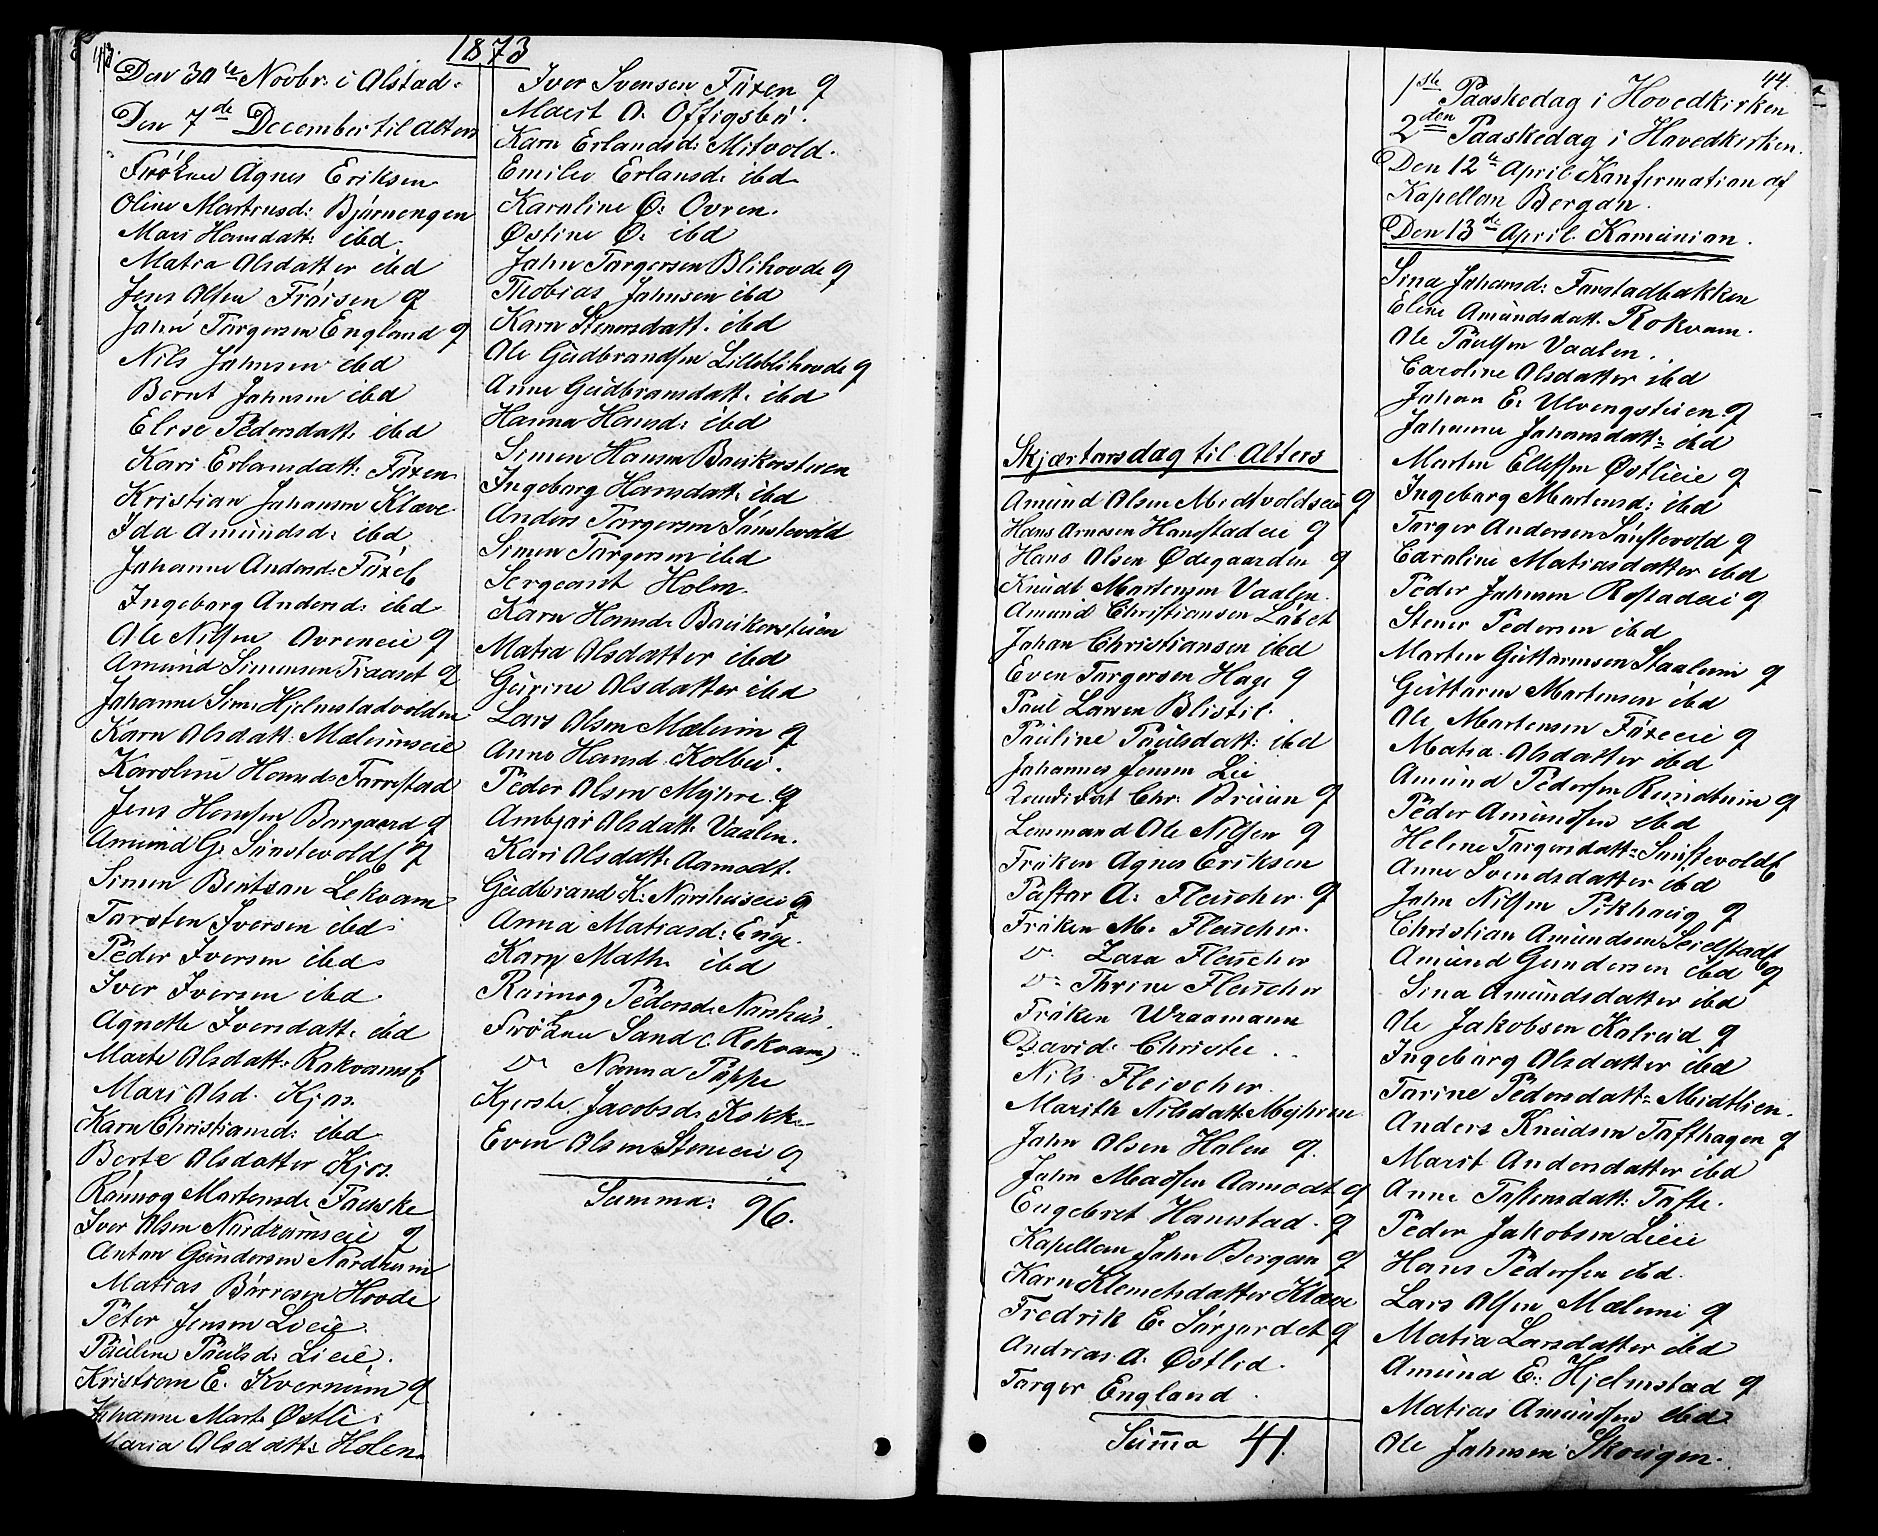 43.
1873
Den 30te Novbr. i Alstad.
Den 7de December til Alters
Frøken Agnes Eriksen
Oline Martinsd: Bjørnengen
Mari Hansdatt: ibd.
Matea Olsdatter ibd
Jens Olsen Frøisen q
John Torgersen England q
Nils Johnsen ibd
Bernt Johnsen ibd
Elise Pedersdatt. ibd
Kari Erlansdatt: Foxen
Kristian Johansen Klæve
Ida Amundsd: ibd
Johanne Andersd: Foxeb
Ingeborg Andersd: ibd
Ole Nilsen Ovreneie q
Amund Simensen Traaset q
Johanne Sim: Hjelmstadvolden
Karn Olsdatt. Mælumseie
Karoline Hansds Forrestad
Jens Hansen Borgaard q
Amund G. Sønstevoldb q
Simen Bentsen Lekvam
Torsten Iversen ibd:
Peder Iversen ibd.
Iver Iversen ibd.
Agnethe Iversdatt: ibd
Marte Olsdatt: Rokvamsb
Mari Olsd. Kjos.
Karn Christiansd: ibd
Berte Olsdatter Kjos.
Rønnog Martensd: Paaske
Iver Olsen Nordrumseie q
Anton Gundersen Nordrum
Matias Børresen Hovde
Peter Jensen Lieie
Pauline Paulsd: Lieie.
Kristian E. Kvernum q
Johanne Mart. Østli:
Maria Olsdatt: Holen
Iver Svensen Foxen q
Marit O. Offigsbø.
Karn Erlandsd: Mitvold.
Emilie Erlansd: ibd
Karoline O: Ovren.
Østine O: ibd
John Torgersen Blihovde q
Thobias Johnsen ibd
Karn Stenersdatt. ibd
Ole Gudbrandsen Lilleblihovde q
Anne Gudbransdatt. ibd
Hanna Hansd: ibd
Simen Hansen Baukerstuen
Ingeborg Hansdatt: ibd
Anders Torgersen Sønstevold
Simen Torgersen ibd
Sergeant Holm.
Karn Hansd: Baukerstuen
Matea Olsdatter ibd
Gurine Olsdatter ibd
Lars Olsen Mælum q
Anne Hansd. Kolbu.
Peder Olsen Myhre q
Ambjør Olsdatt. Vaalen.
Kari Olsdatt: Aamodt.
Gudbrand K. Norshuseie q
Anna Matiasd: Enge.
Karn Math: ibd
Rønnog Pedersd: Norshus.
Frøken Sand (Rokvam)
v Nanna Poppe
Kjersti Jacobsd: Kokk
Even Olsen Steneie q
Summa: 96.
Skjærtorsdag til Alters
Amund Olsen Midtvoldseie q
Hans Arnesen Hanstadeie q
Hans Olsen Ødegaarden q
Knudt Martensen Vaalen
Amund Christiansen Løbet
Johan Christiansen ibd
Even Torgersen Hage q
Paul Larsen Blistil.
Pauline Paulsdatt: ibd
Johannes Jensen Lie
Kandidat Chr. Bruun q
Lensmand Ole Nilsen q
Frøken Agnes Eriksen
Pastor A: Fleischer. q
Frøken M. Fleischer.
v. Zara Fleischer
v. Thrine Fleischer
Frøken Wraamann
David: Christie ..
Nils Fleischer.
Marith Nilsdatt: Myhren
John Olsen Holen q.
John Madsen Aamodt q
Engebret Hanestad. q
Kapellan John Bergan q
Karn Klemetsdatter Klæve
Fredrik E. Sørjordet q
Andrias A. Østlid.
Torger England.
Summa 41.
44.
1ste Paaskedag i Hovedkirken
2den Paaskedag i Hovedkirken.
Den 12te April Konfirmation af
Kapellan Bergan.
Den 13de April Komunion.
Sina Johansd: Forstadbakken
Eline Amundsdatt. Rokvam.
Ole Paulsen Vaalen.
Caroline Olsdatter ibd
Johan E. Ulvengstuen. q
Johanne Johansdatt: ibd
Martin Ellefsen Østlieie q
Ingeborg Martensd: ibd
Torger Andersen Sønstevold q
Caroline Matiasdatter ibd
Peder Johnsen Rostadeie q
Stener Pedersen ibd
Marten Guttormsen Staalemi q
Guttorm Martensen ibd
Ole Martensen Foxeie q
Matea Olsdatter ibd
Amund Pedersen Rundtuin q
Peder Amundsen ibd
Helene Torgersdatt: Sønstevoldb
Anne Svendsdatter ibd
John Nilsen Pikhaug q
Christian Amundsen Seielstadb
Amund Gundersen ibd q
Sina Amundsdatter ibd
Ole Jakobsen Kalrud q
Ingeborg Olsdatter ibd
Torine Pedersdatt: Midtlien.
Anders Knudsen Tofthagen q
Marit Andersdatter ibd
Anne Tostensdatt. Tofte.
Peder Jakobsen Lieie
Hans Pedersen ibd.
Lars Olsen Mælum q
Matea Larsdatter ibd
Amund E: Hjelmstad q
Matias Amundsen ibd
Ole Johnsen Skougen.